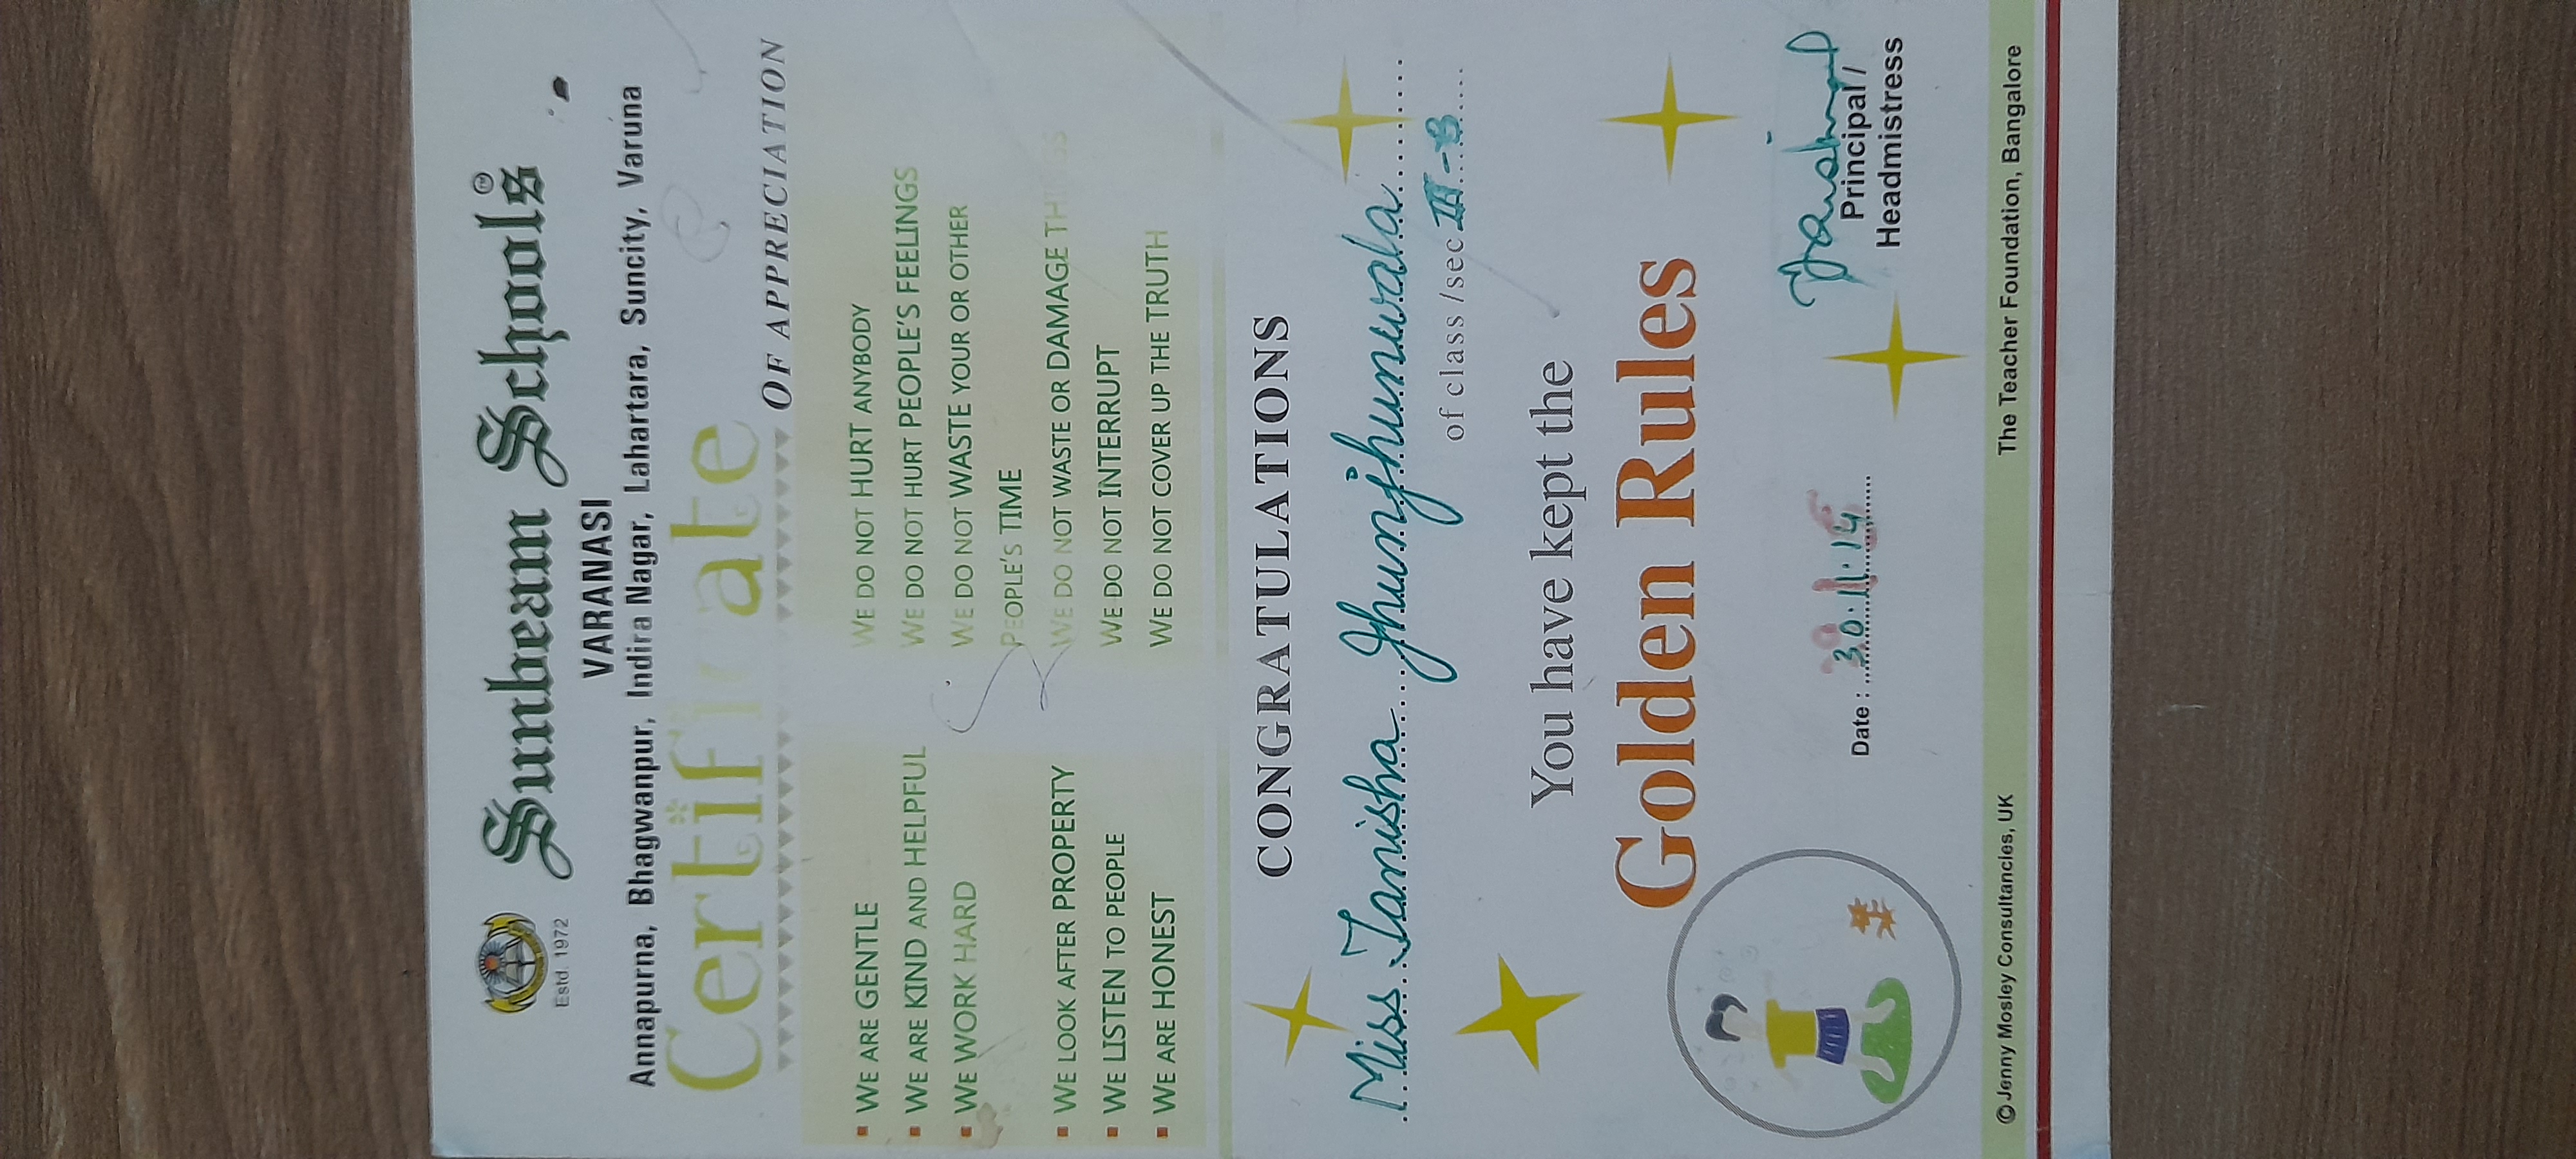 Sunbeam Schools
TM
Estd. 1972
VARANASI
Annapurna, Bhagwanpur, Indira Nagar, Lahartara, Suncity, Varuna
Certificate
OF APPRECIATION
WE ARE GENTLE WE DO NOT HURT ANYBODY
WE ARE KIND AND HELPFUL WE DO NOT HURT PEOPLE'S FEELINGS
WE WORK HARD WE DO NOT WASTE YOUR OR OTHER
PEOPLE'S TIME
WE LOOK AFTER PROPERTY WE DO NOT WASTE OR DAMAGE THINGS
WE LISTEN TO PEOPLE WE DO NOT INTERRUPT
WE ARE HONEST WE DO NOT COVER UP THE TRUTH
CONGRATULATIONS
Miss Tanisha Jhunjhunwala
of class /sec III-B
You have kept the
Golden Rules
Date : 30.11.14
Principal /
Headmistress
©Jenny Mosley Consultancies, UK The Teacher Foundation, Bangalore